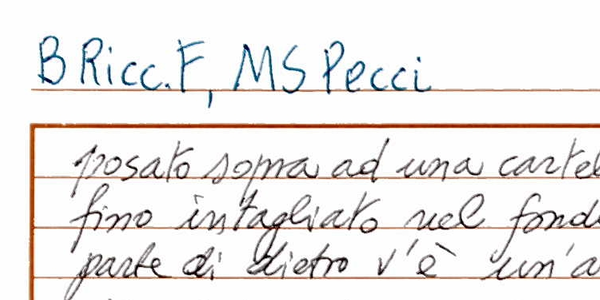 B Ricc. F, MS Pecci
posato sopra ad una cartel
fino intagliato nel fond
parte di dietro v'è un'a